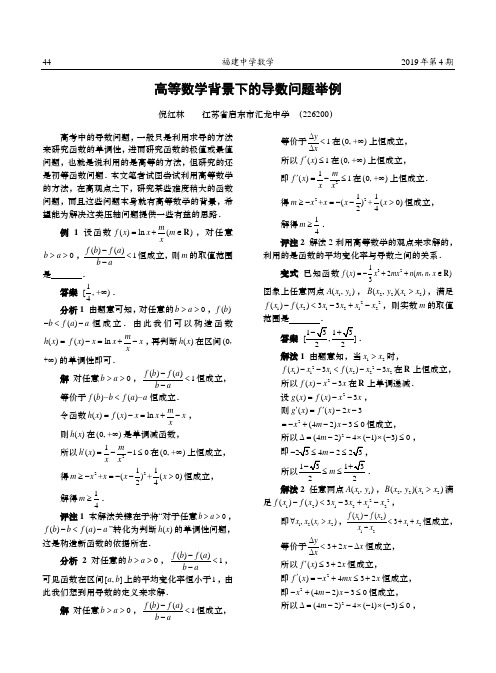 44
福建中学数学
2019 年第 4 期
高等数学背景下的导数问题举例
倪红林 江苏省启东市汇龙中学 (226200)
高考中的导数问题,一般只是利用求导的方法
来研究函数的单调性,进而研究函数的极值或最值
问题,也就是说利用的是高等的方法,但研究的还
是初等函数问题.本文笔者试图尝试利用高等数学
的方法,在高观点之下,研究某些难度稍大的函数
问题,而且这些问题本身就有高等数学的背景,希
望能为解决这类压轴问题提供一些有益的思路.
例 1 设函数 f(x) = ln x + m/x (m∈R),对任意
b > a > 0,(f(b) − f(a))/(b − a) < 1 恒成立,则 m 的取值范围
是 .
答案 [1/4, +∞).
分析 1 由题意可知,对任意的 b > a > 0,f(b)
−b < f(a) − a 恒成立.由此我们可以构造函数
h(x) = f(x) − x = ln x + m/x − x,再判断 h(x) 在区间 (0,
+∞) 的单调性即可.
解 对任意 b > a > 0,(f(b) − f(a))/(b − a) < 1 恒成立,
等价于 f(b) − b < f(a) − a 恒成立.
令函数 h(x) = f(x) − x = ln x + m/x − x,
则 h(x) 在 (0, +∞) 是单调减函数,
所以 h′(x) = 1/x − m/x² − 1 ≤ 0 在 (0, +∞) 上恒成立,
得 m ≥ −x² + x = −(x − 1/2)² + 1/4 (x > 0) 恒成立,
解得 m ≥ 1/4.
评注 1 本解法关键在于将“对于任意 b > a > 0,
f(b) − b < f(a) − a”转化为判断 h(x) 的单调性问题,
这是构造新函数的依据所在.
分析 2 对任意的 b > a > 0,(f(b) − f(a))/(b − a) < 1,
可见函数在区间 [a, b] 上的平均变化率恒小于 1,由
此我们想到用导数的定义来求解.
解 对任意 b > a > 0,(f(b) − f(a))/(b − a) < 1 恒成立,
等价于 Δy/Δx < 1 在 (0, +∞) 上恒成立,
所以 f′(x) ≤ 1 在 (0, +∞) 上恒成立,
即 f′(x) = 1/x − m/x² ≤ 1 在 (0, +∞) 上恒成立.
得 m ≥ −x² + x = −(x − 1/2)² + 1/4 (x > 0) 恒成立,
解得 m ≥ 1/4.
评注 2 解法 2 利用高等数学的观点来求解的,
利用的是函数的平均变化率与导数之间的关系.
变式 已知函数 f(x) = −1/3 x³ + 2mx² + n(m, n, x∈R)
图象上任意两点 A(x₁, y₁),B(x₂, y₂)(x₁ > x₂),满足
f(x₁) − f(x₂) < 3x₁ − 3x₂ + x₁² − x₂²,则实数 m 的取值
范围是 .
答案 [(1−√3)/2, (1+√3)/2].
解法 1 由题意知,当 x₁ > x₂ 时,
f(x₁) − x₁² − 3x₁ < f(x₂) − x₂² − 3x₂ 在 R 上恒成立,
所以 f(x) − x² − 3x 在 R 上单调递减.
设 g(x) = f(x) − x² − 3x,
则 g′(x) = f′(x) − 2x − 3
= −x² + (4m − 2)x − 3 ≤ 0 恒成立,
所以 Δ = (4m − 2)² − 4×(−1)×(−3) ≤ 0,
即 −2√3 ≤ 4m − 2 ≤ 2√3,
所以 (1−√3)/2 ≤ m ≤ (1+√3)/2.
解法 2 任意两点 A(x₁, y₁),B(x₂, y₂)(x₁ > x₂) 满
足 f(x₁) − f(x₂) < 3x₁ − 3x₂ + x₁² − x₂²,
即 ∀x₁, x₂(x₁ > x₂),(f(x₁) − f(x₂))/(x₁ − x₂) < 3 + x₁ + x₂ 恒成立,
等价于 Δy/Δx < 3 + 2x − Δx 恒成立,
所以 f′(x) ≤ 3 + 2x 恒成立,
即 f′(x) = −x² + 4mx ≤ 3 + 2x 恒成立,
即 −x² + (4m − 2)x − 3 ≤ 0 恒成立,
所以 Δ = (4m − 2)² − 4×(−1)×(−3) ≤ 0,